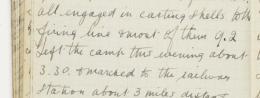 all engaged in carting shells to the
firing line & most of them 9.2
Left the camp this evening about
3.30. & marched to the railway
station about 3 miles distant